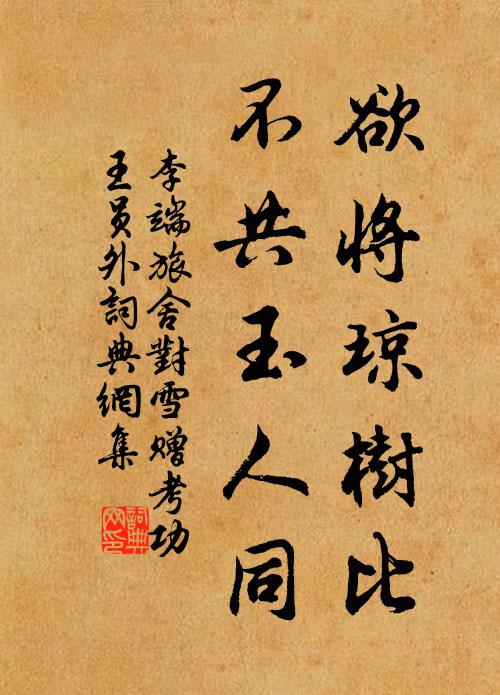 欲将琼樹比
不共玉人同
李端旅舍對雪贈考功
王員外詞典網集